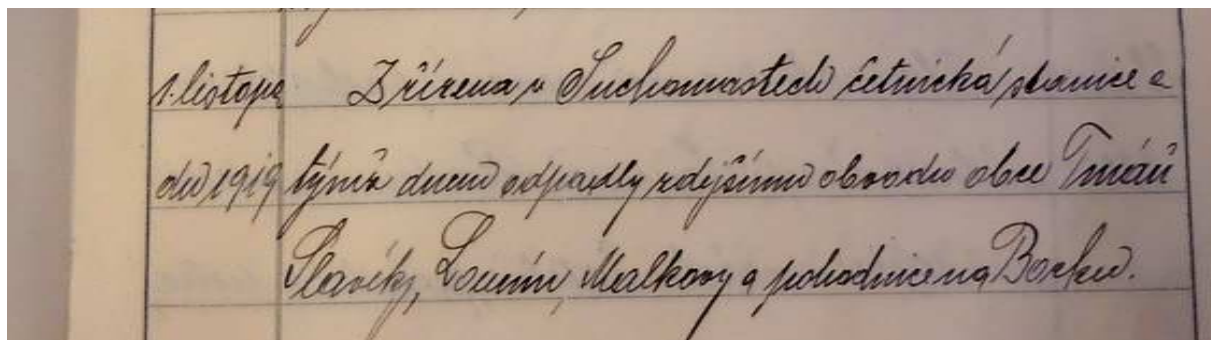 1. listopa Zřízena v Suchomastech četnická stanice a
du 1919 týmž dnem odpadly zdejšímu obvodu obce Tmáň
Slavíky, Lounín, Malkovy a pohodnice na Borku.